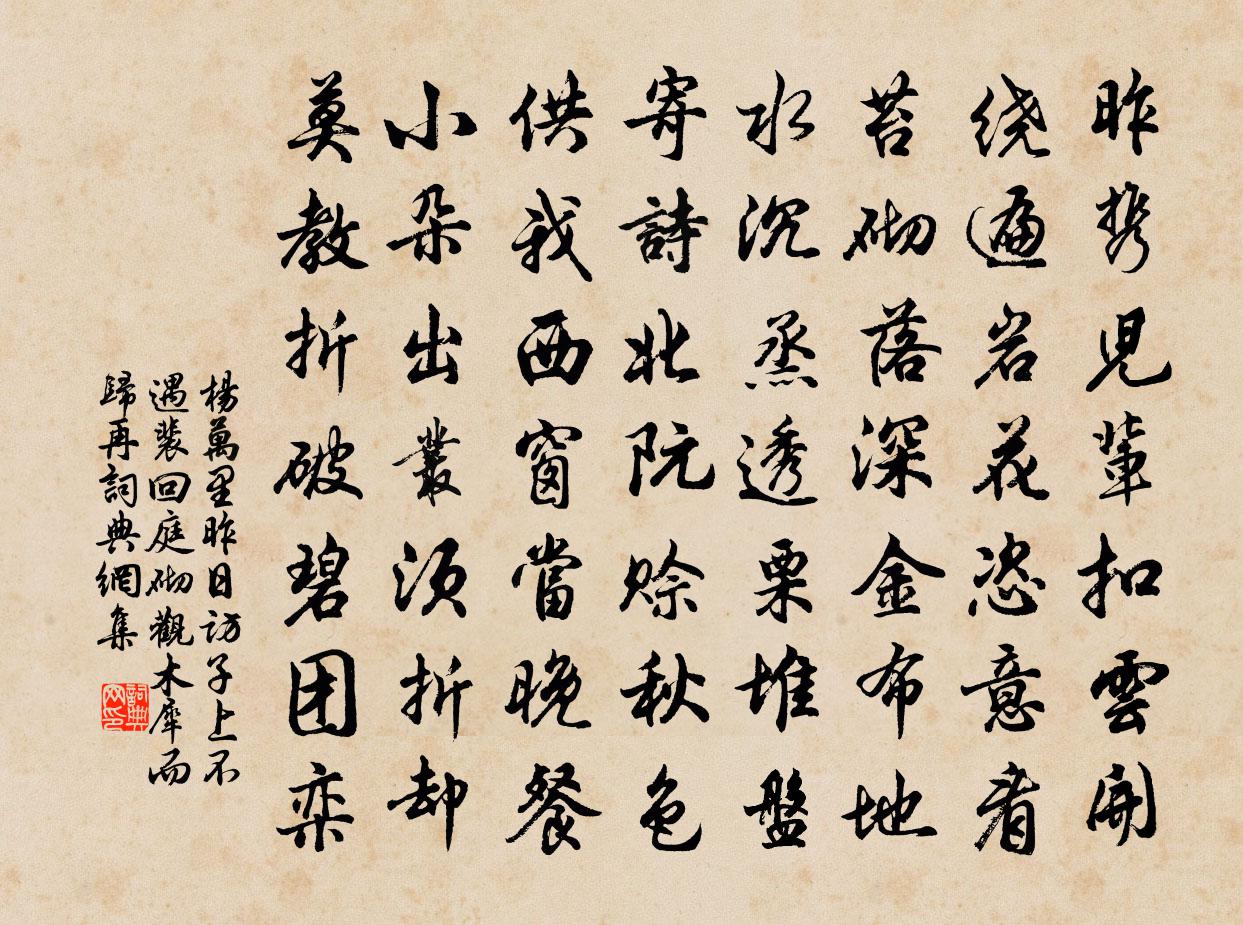 昨携児輩扣雲開
绕遍岩花恣意看
苔砌落深金布地
水沉蒸透栗堆盤
寄詩北阮赊秋色
供我西窗當晚餐
小朵出叢须折却
莫教折破碧团栾
楊萬里昨日访子上不
遇裴回庭砌觀木犀而
歸再詞典網集
詞典
网印